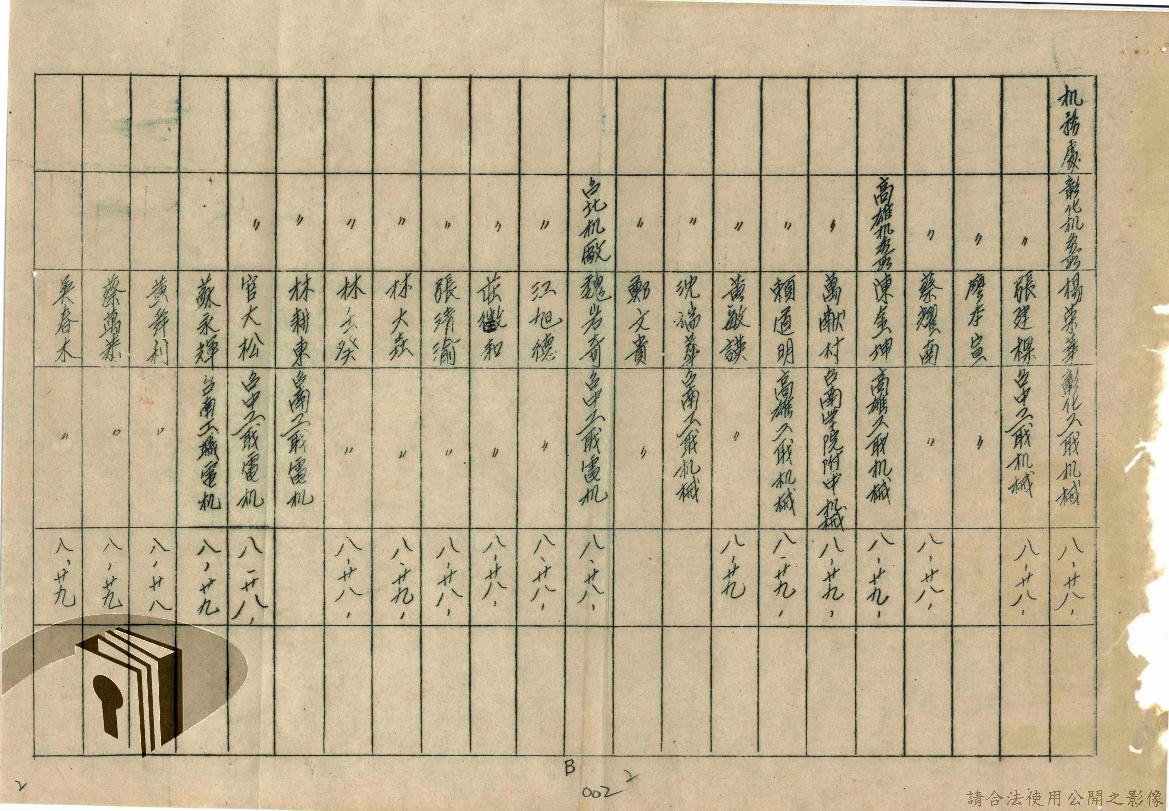 机務處 彰化机務段 楊荣華 彰化工職机械 八、廿八、
〃 張建樑 台中工職机械 八、廿八、
〃 廖本宣 〃
〃 蔡耀南 〃 八、廿八、
高雄机務段 陳金坤 高雄工職机械 八、廿九、
〃 萬献村 台南学院附中机械 八、廿九、
〃 賴道明 高雄工職机械 八、廿九、
〃 黃敏謨 〃 八、廿九
〃 沈瑞華 台南工職机械
〃 鄭文貴 〃
台北机廠 魏岩奇 台中工職電机 八、廿八、
〃 江旭德 〃 八、廿八、
〃 莊徵和 〃 八、廿八、
〃 張清渝 〃 八、廿八、
〃 林大森 〃 八、廿九、
〃 林壬癸 〃 八、廿八、
〃 林耕東 台南工職電机
〃 官大松 台中工職電机 八、廿八、
蘇永輝 台南工職電机 八、廿九
黃舜利 〃 八、廿八
蔡萬恭 〃 八、廿九
吳春木 〃 八、廿九
2
B
002
2
請合法使用公開之影像